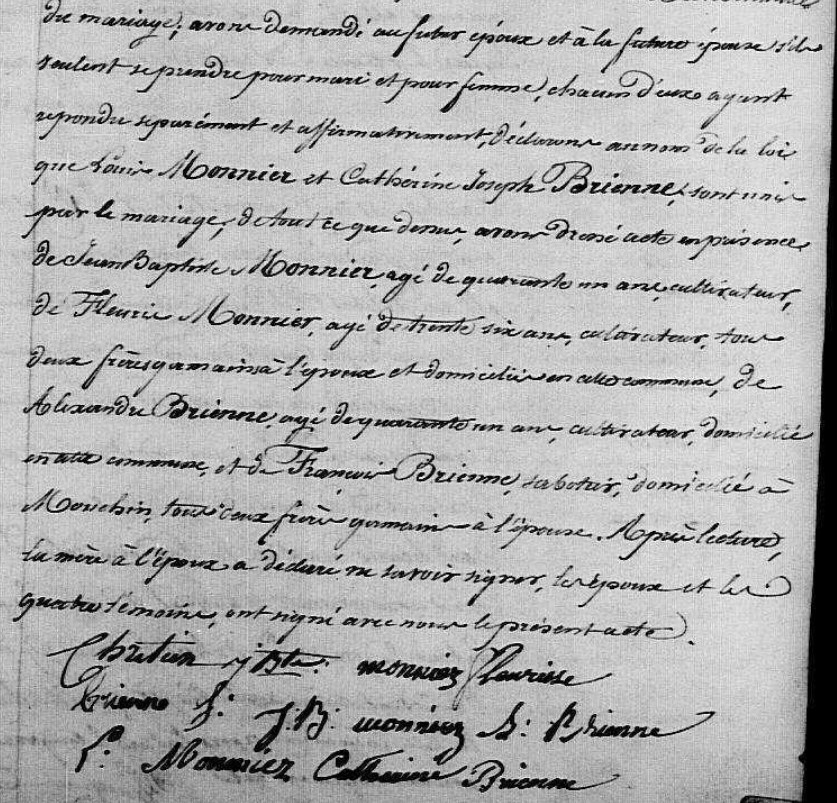 du mariage, avons demandé au futur époux et à la future épouse s'ils
veulent se prendre pour mari et pour femme, chacun d'eux ayant
repondu separément et affirmativement, déclarons au nom de la loi
que Louis Monnier et Cathérine Joseph Brienne, sont unis
par le mariage, de tout ce que dessus, avons dressé acte en présence
de Jean Baptiste Monnier, agé de quarante un ans, cultivateur,
de Fleuris Monnier, agé de trente six ans, cultivateur, tous
deux frères germains à l'époux et domiciliés en cette commune, de
Alexandre Brienne, agé de quarante un ans, cultivateur, domicilié
en cette commune, et de François Brienne, sabotier, domicilié à
Mouchin, tous deux frères germains à l'épouse. Après lecture,
la mère à l'époux a déclaré ne savoir signer, les époux et les
quatre témoins, ont signé avec nous le présent acte.
Chretien j Bte. monniez Fleurisse
Brienne f. J. B. monniez A. Brienne
L. Monniez Catherine Brienne